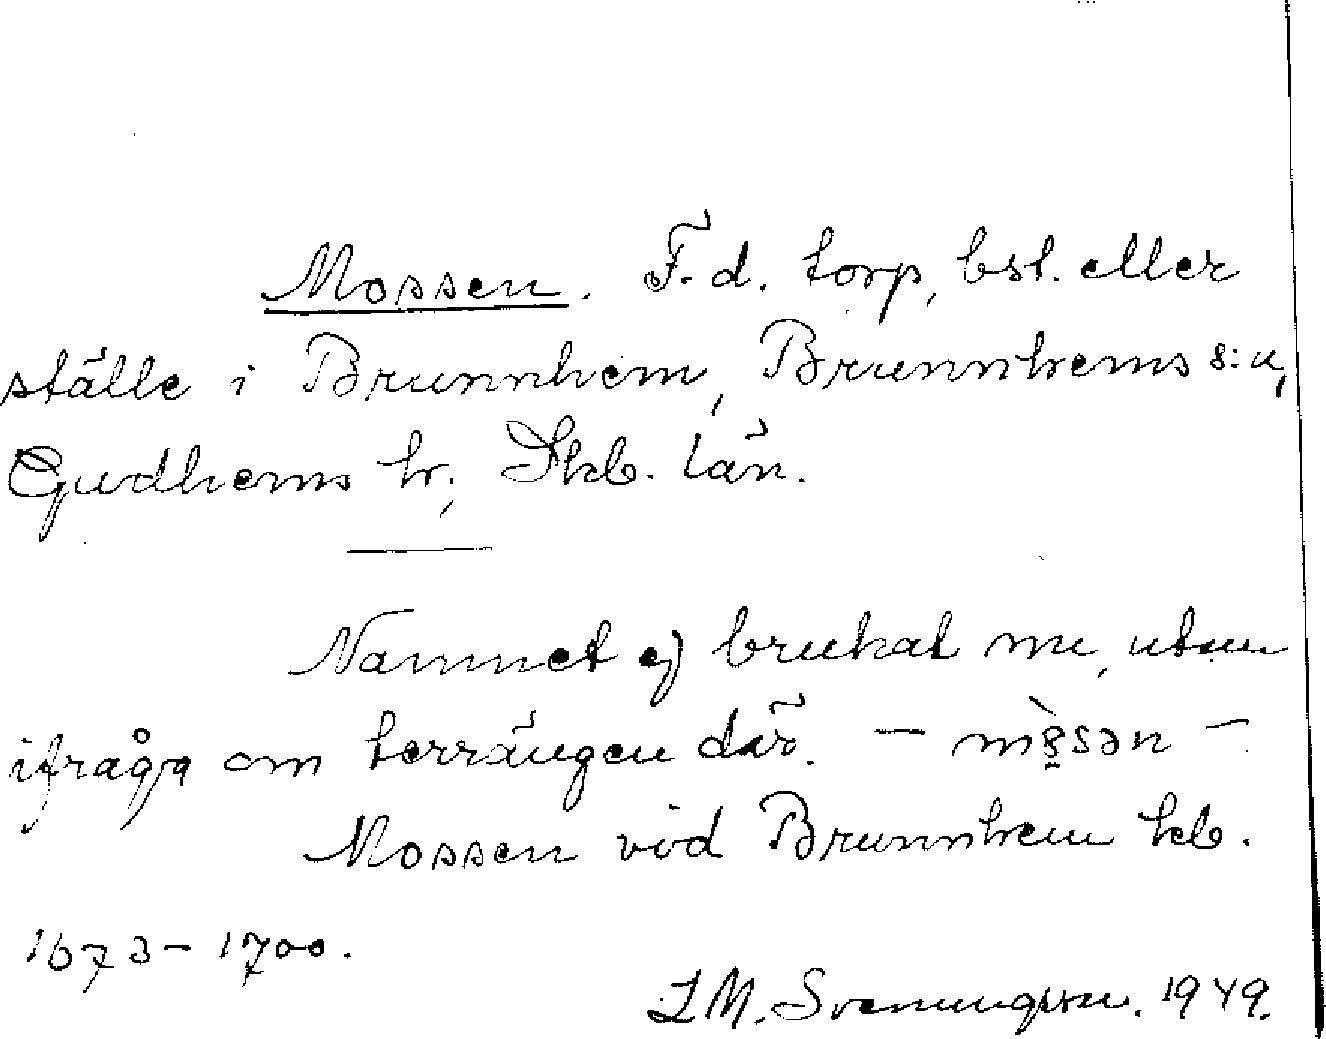 Mossen. F.d. torp, bst. eller
ställe i Brunnhem, Brunnhems s:n,
Gudhems hr, Skb. län.
Namnet ej brukat nu, utan
ifråga om terrängen där. —
Mossen vid Brunnhem kb.
1673-1700.
L M. Svenungsson. 1949.